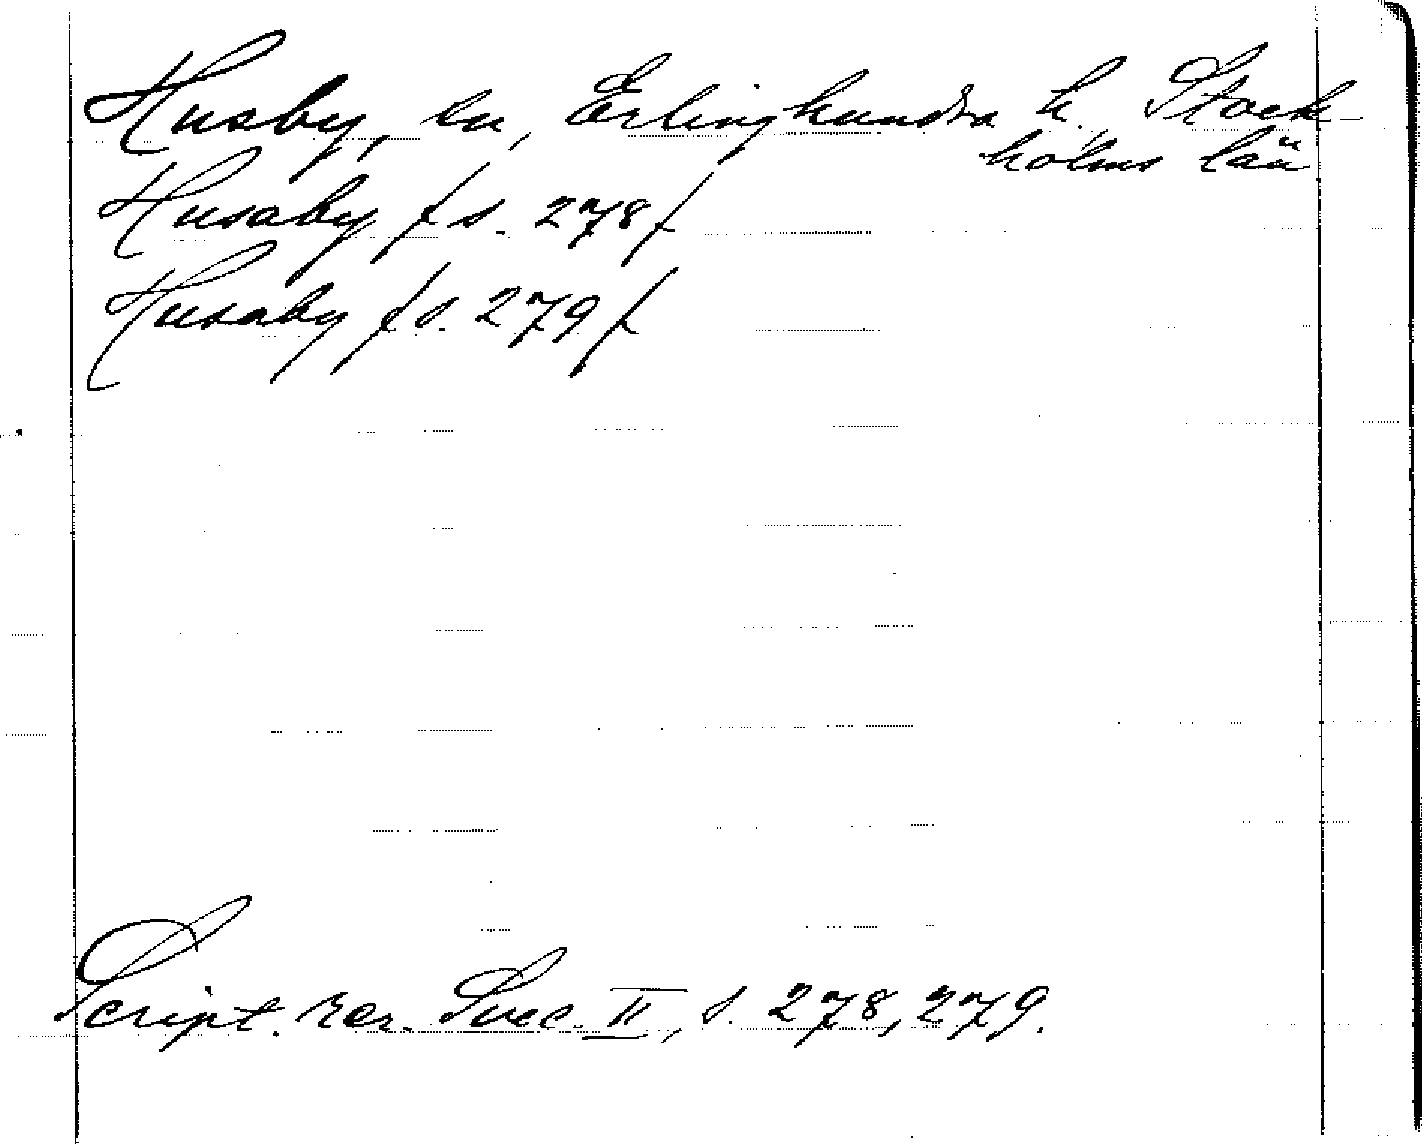 Husby, sn, Erlinghundra h. Stock-
holms län
Husaby /s. 278/
Husaby /s. 279/
Script. rer. Svec. II, s. 278, 279.